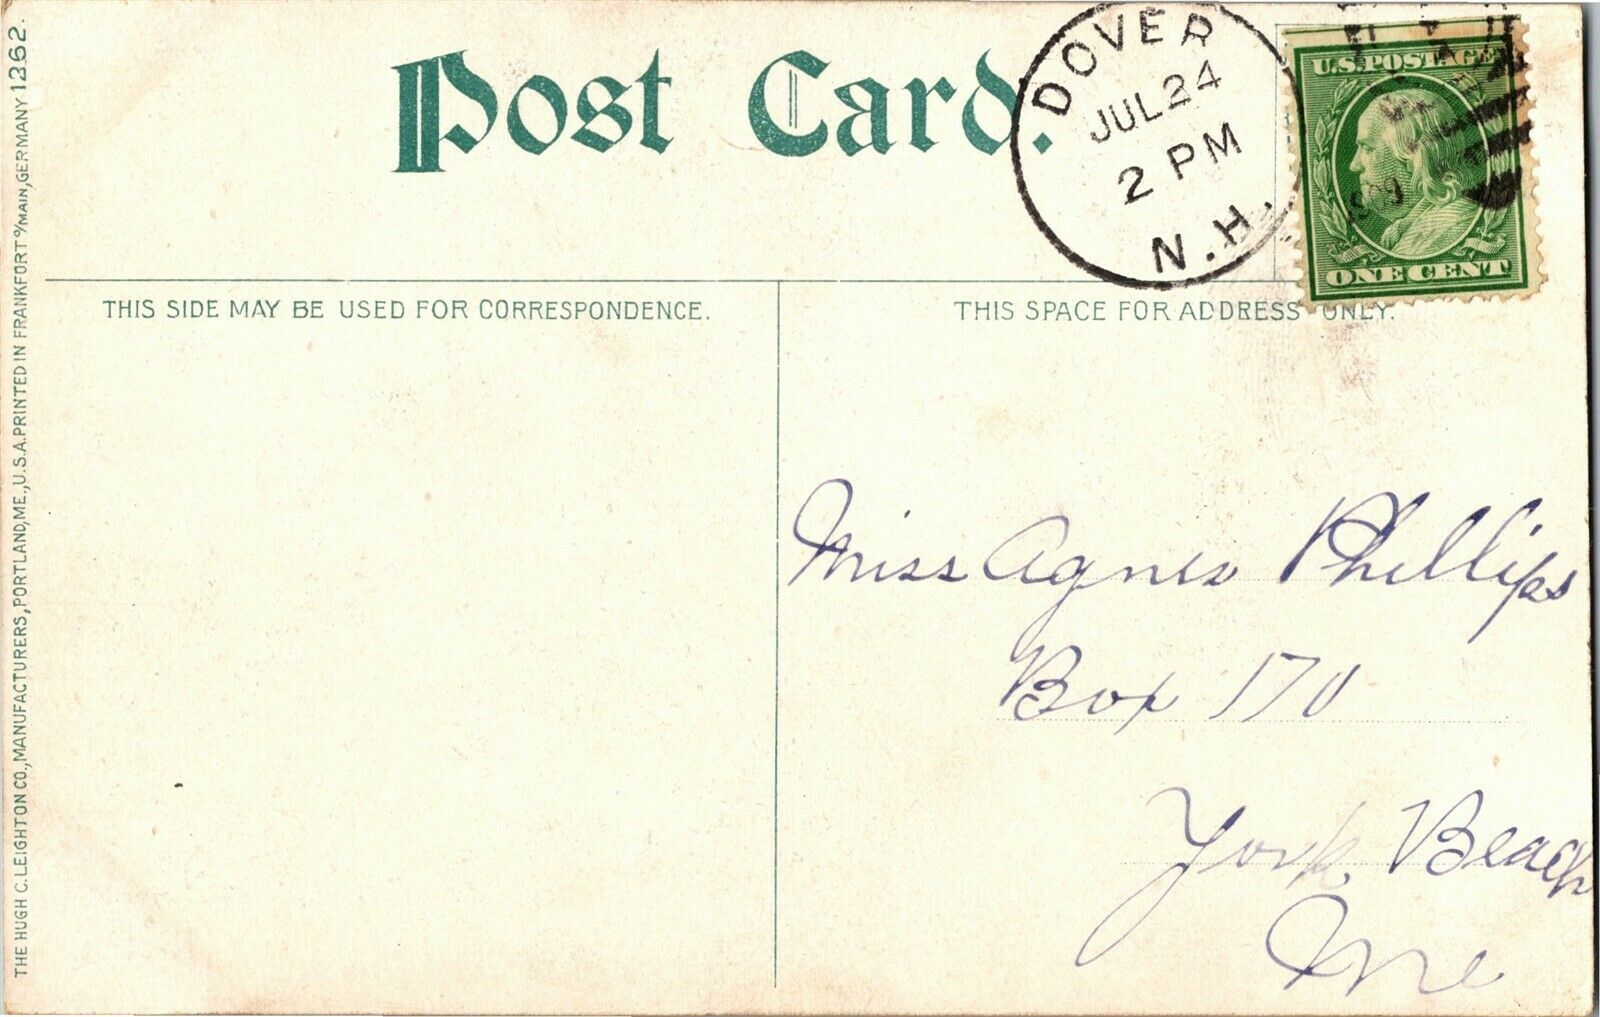 Post Card.
DOVER
JUL 24
2 PM
N.H.
1909
U.S. POSTAGE
ONE CENT
THIS SIDE MAY BE USED FOR CORRESPONDENCE.
THIS SPACE FOR ADDRESS ONLY.
Miss Agnes Phillips
Box 170
York Beach
Me
THE HUGH C. LEIGHTON CO., MANUFACTURERS, PORTLAND, ME., U.S.A. PRINTED IN FRANKFORT o/MAIN, GERMANY 1262.